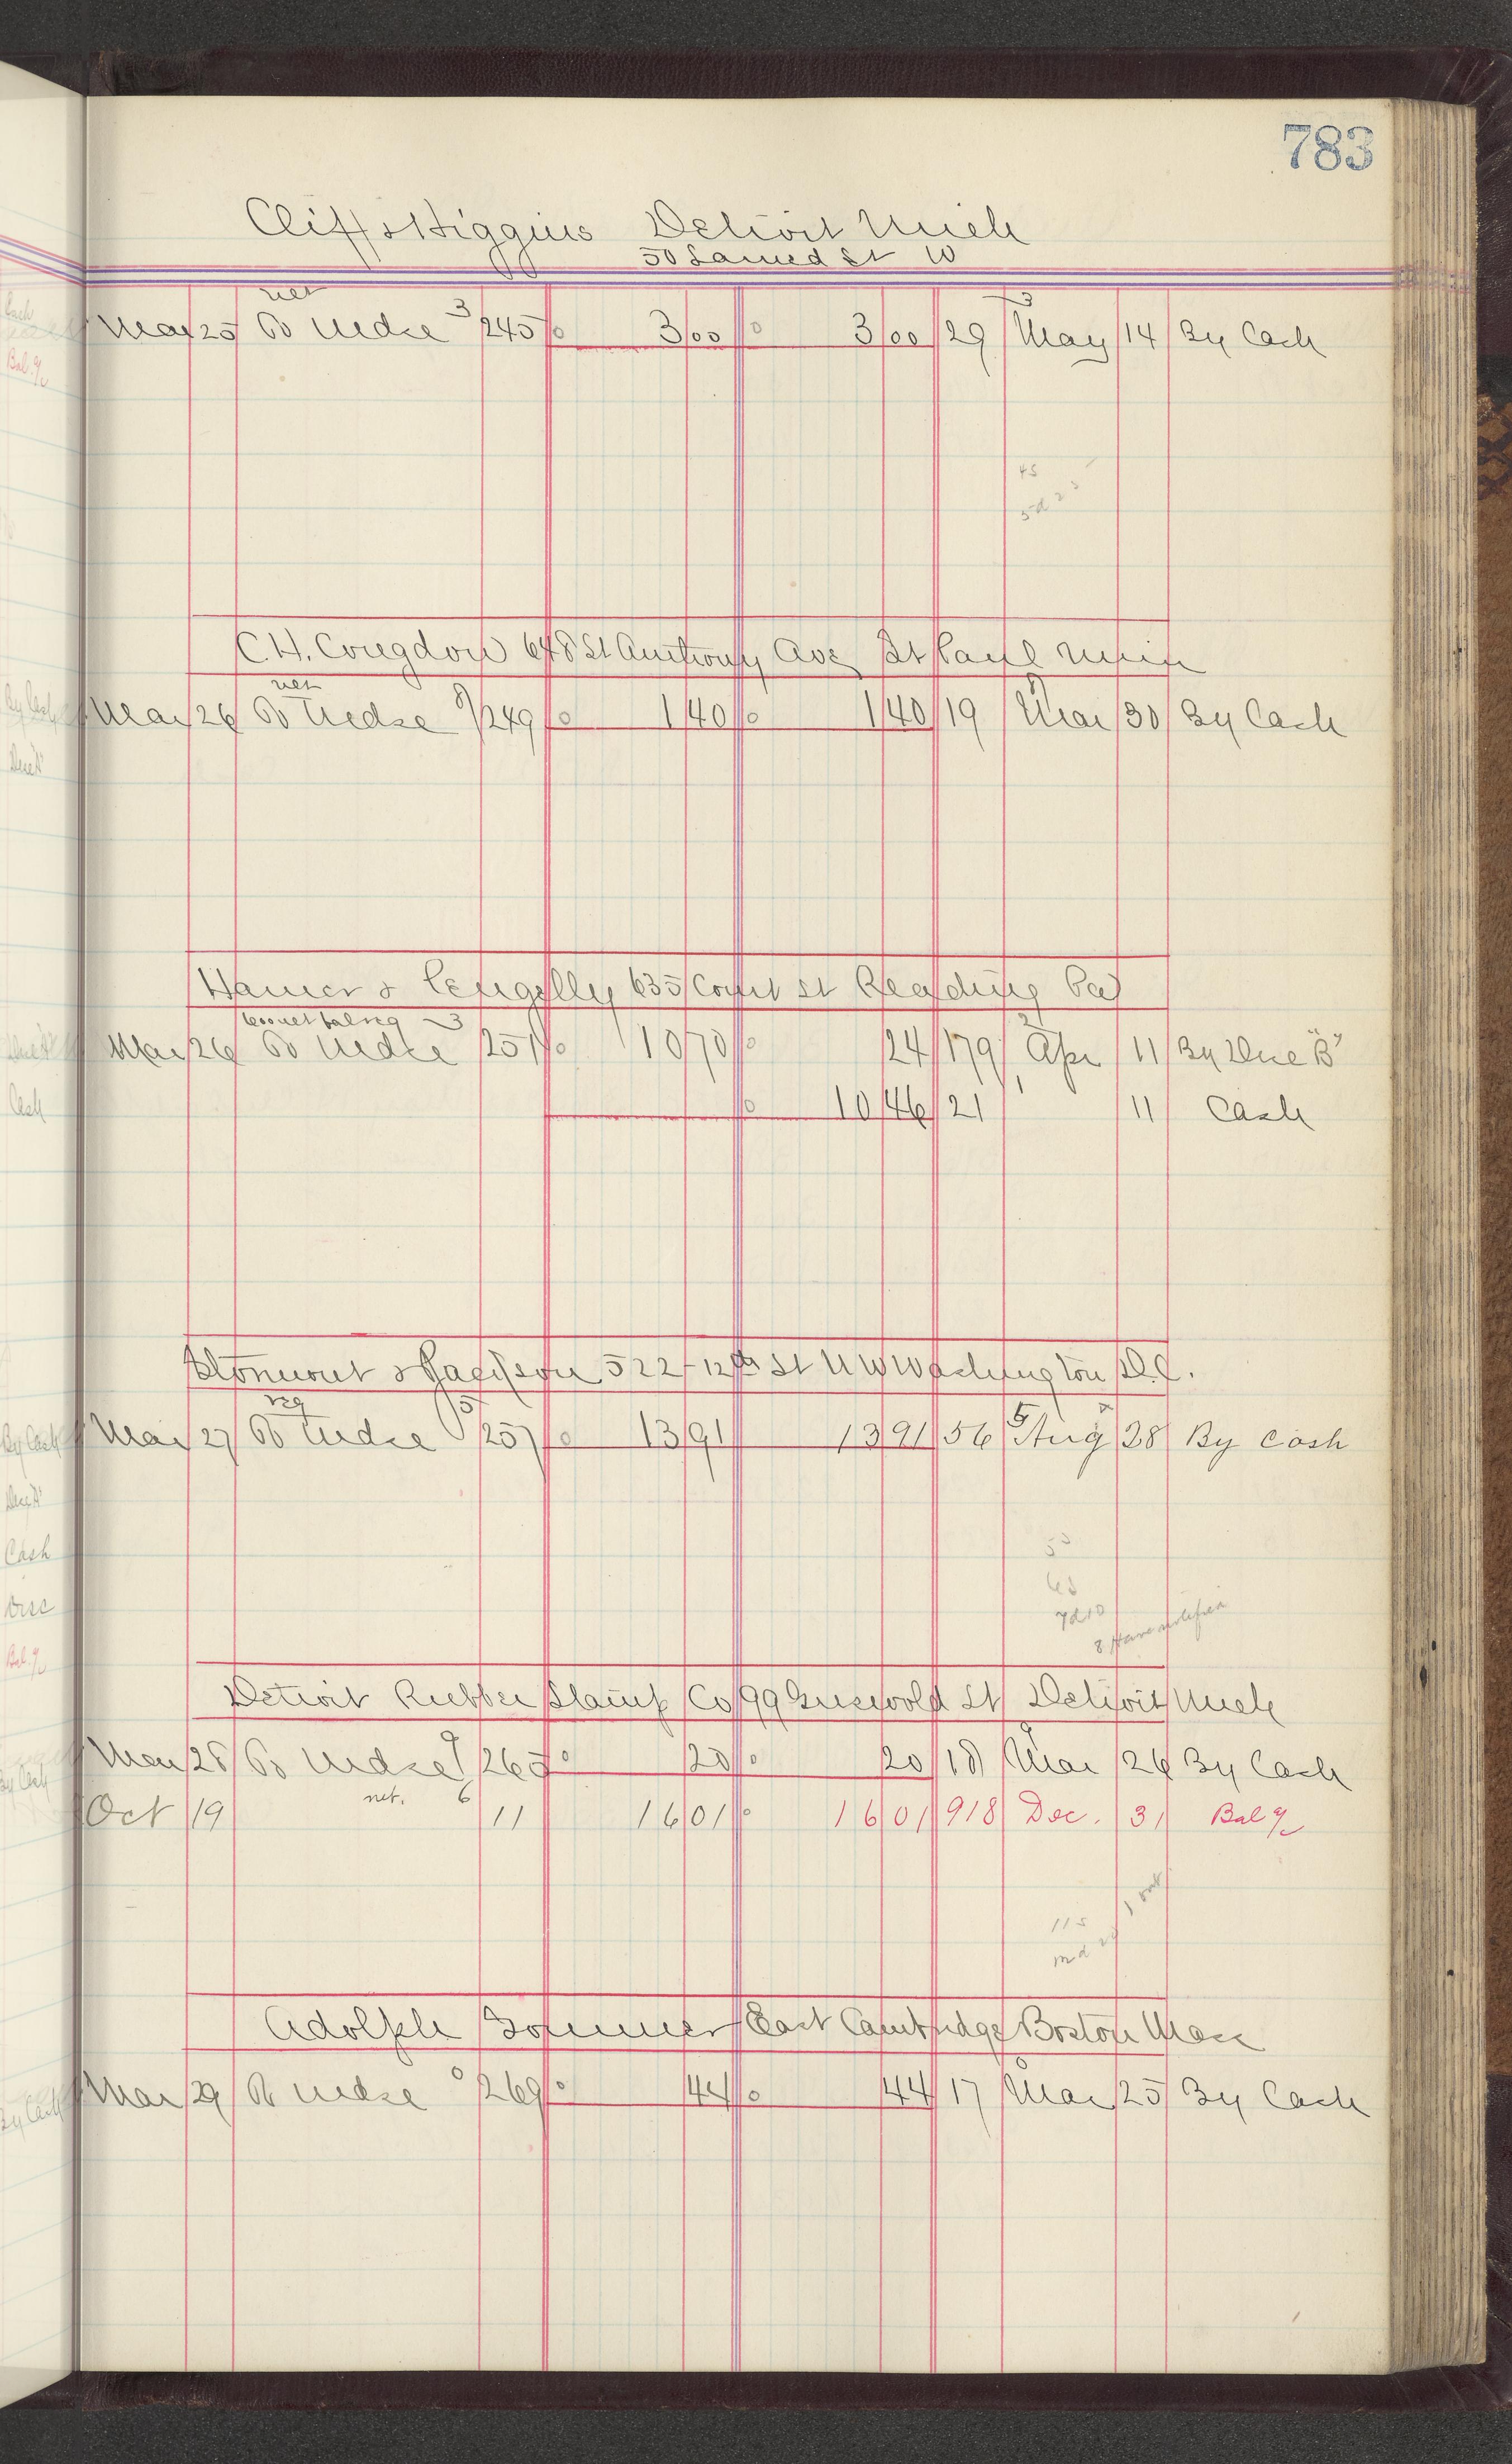 783
Cliff & Higgins Detroit Mich
50 Larned St W
net 3 3
Mar 25 To Mdse 245 3 00 3 00 29 May 14 By Cash
45
5d 25
C.H. Congdon 648 St Anthony Ave St Paul Minn
net
Mar 26 To Mdse 249 1 40 1 40 19 Mar 30 By Cash
Hamer & Pengelly 635 Court St Reading Pa
600 net bal reg 3
Mar 26 To Mdse 251 10 70 24 179 Apr 11 By Disc "B"
10 46 21 11 Cash
Stormont & Jackson 522-12th St N W Washington D.C.
reg 5 5
Mar 27 To Mdse 257 13 91 13 91 56 Aug 28 By Cash
55
65
7d10
8 Have notified
Detroit Rubber Stamp Co 99 Griswold St Detroit Mich
Mar 28 To Mdse 265 20 20 18 Mar 26 By Cash
net. 6
Oct 19 11 16 01 16 01 918 Dec. 31 Bal %
115
Adolph Sommer East Cambridge Boston Mass
Mar 29 To Mdse 269 44 44 17 Mar 25 By Cash